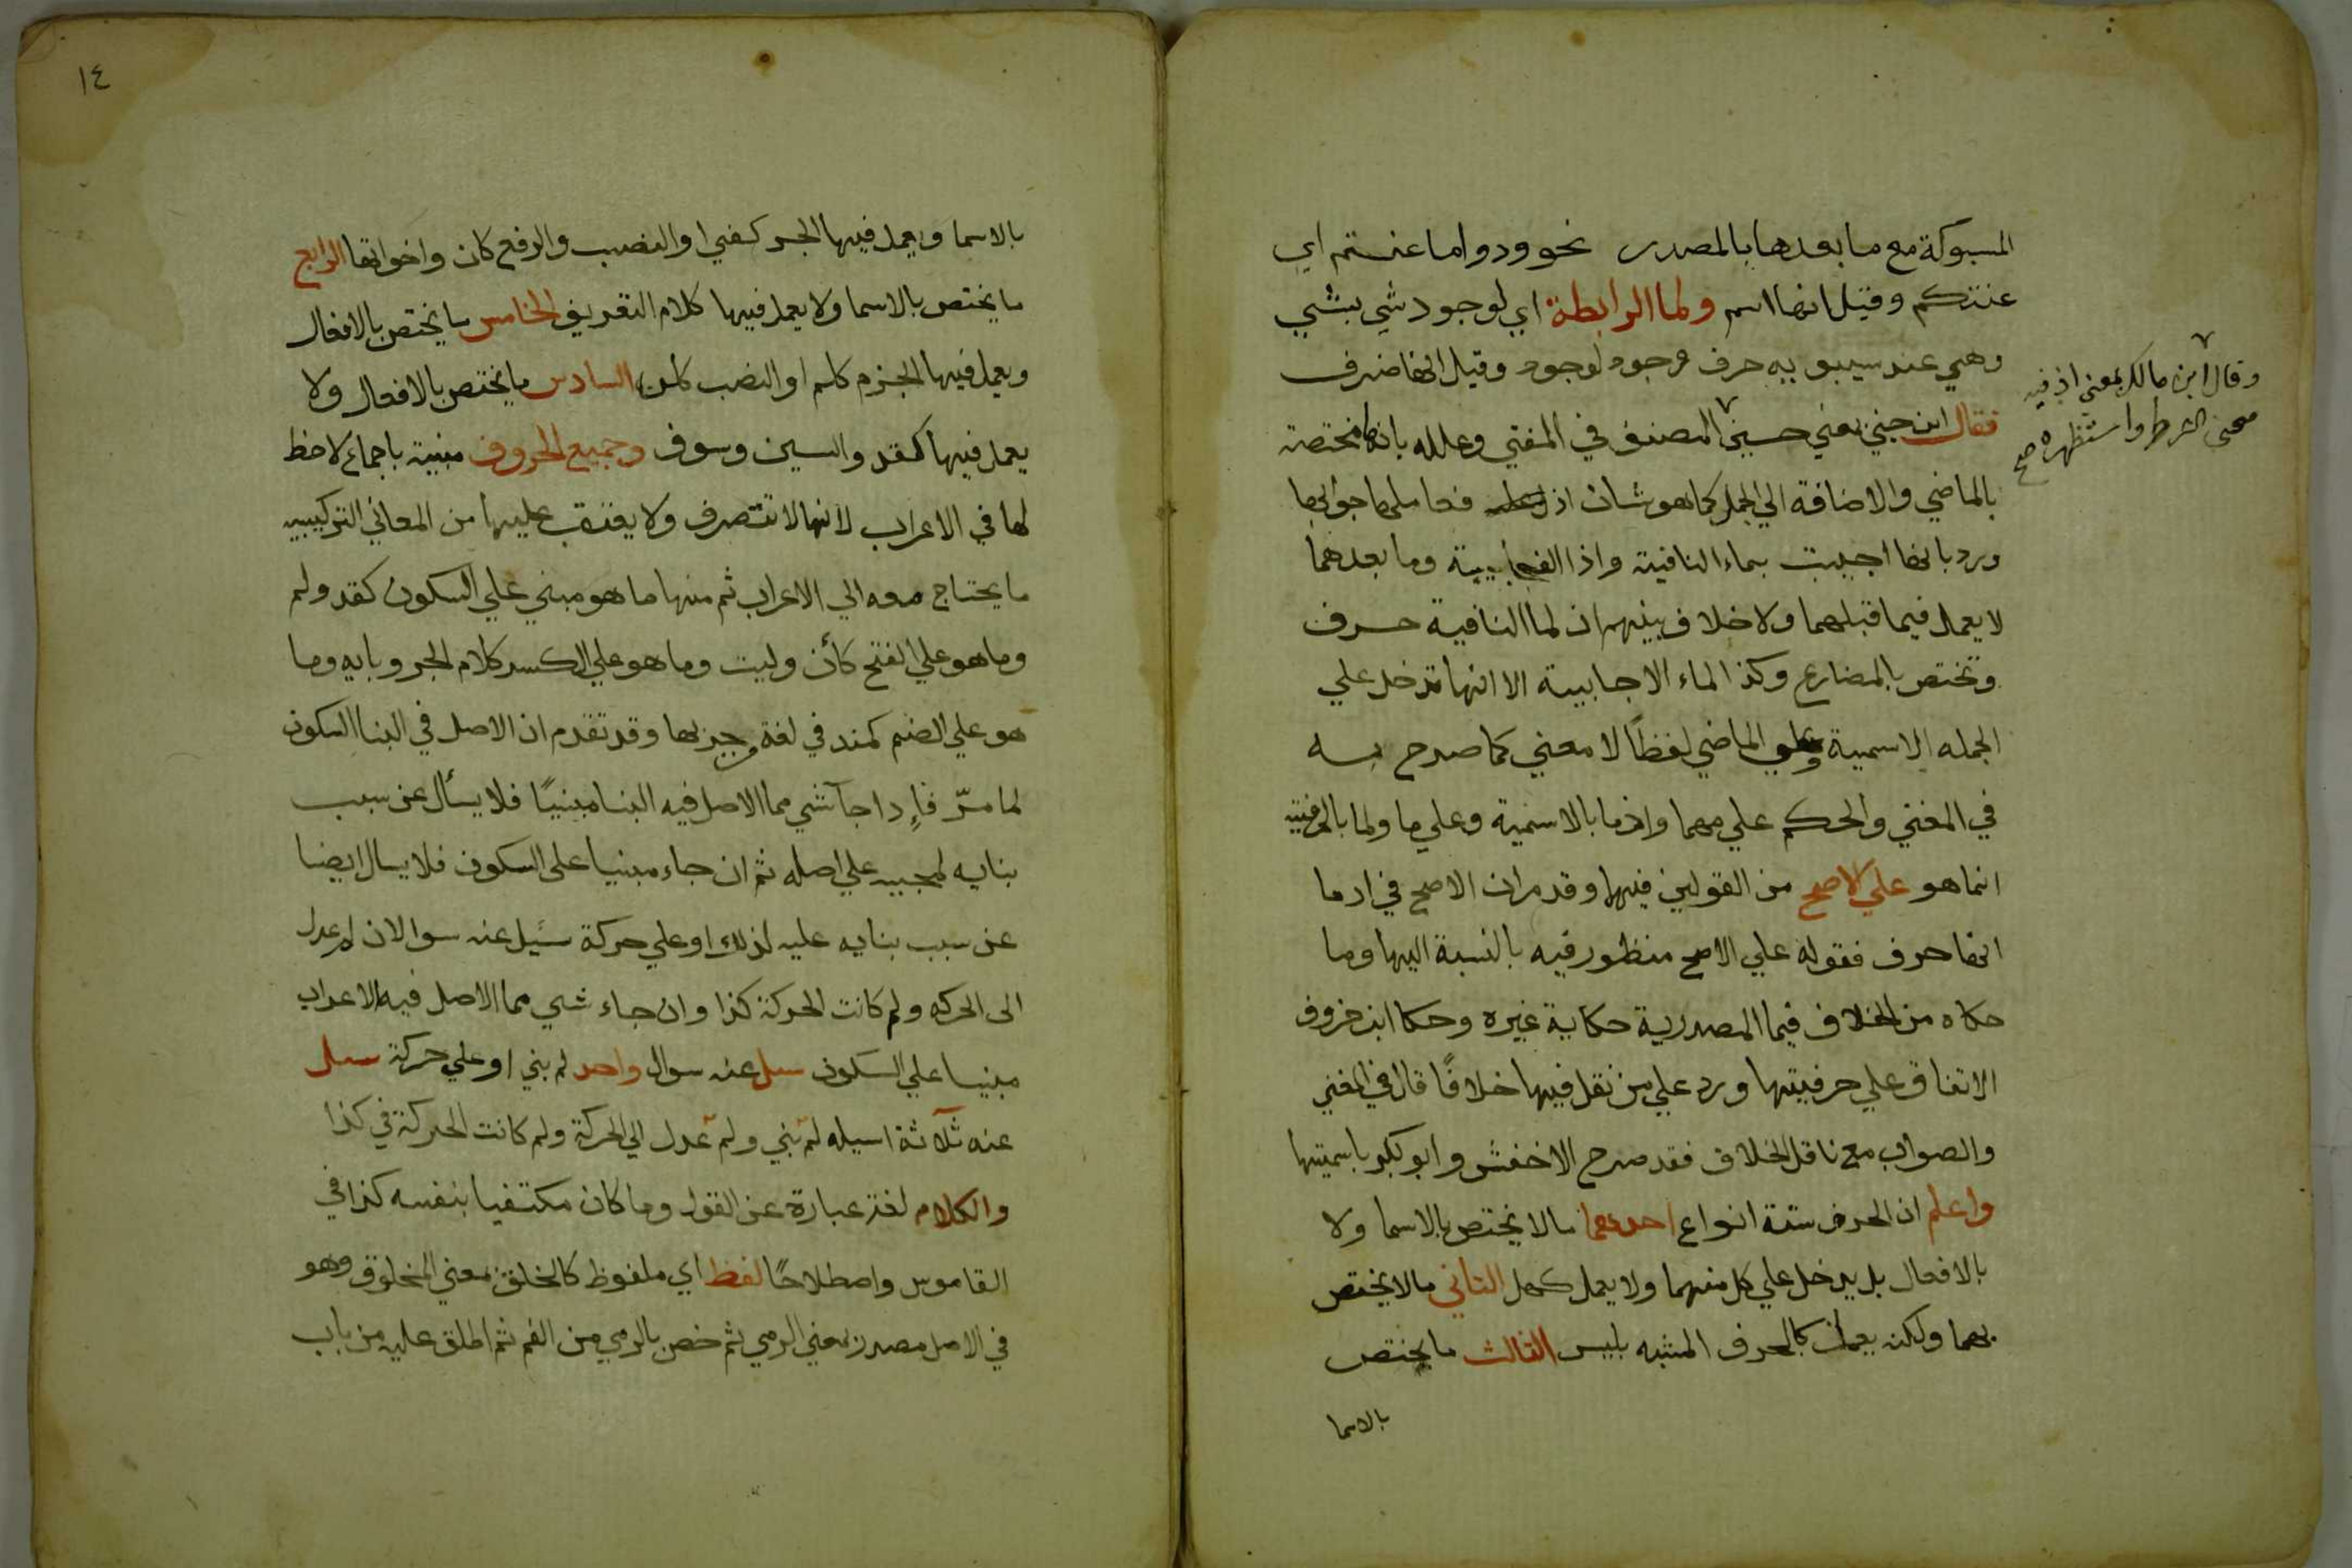 المسبوكة مع ما بعدها بالمصدر نحو ودوا ما عنتم اي
عنتكم وقيل انها اسم ولما الرابطة اي لوجود شي بشي
وهي عند سيبويه حرف وجود لوجود وقيل انها ظرف
فقال ابن جني بمعني حين المصنف في المغني وعلله بانها مختصة
وقال ابن مالك بمعني اذ فيه
معني الشرط واستظهره صح
بالماضي والاضافة الي الجمل كما هو شان اذ فعاملها جوابها
ورد بانها اجيبت بماء النافية واذا الفجاييية وما بعدهما
لا يعمل فيما قبلهما ولا خلاف بينهم ان لما النافية حرف
وتختص بالمضارع وكذا لماء الاجابية الا انها تدخل علي
الجمله الاسمية وعلي الماضي لفظًا لا معني كما صرح به
في المغني والحكم علي مهما واذما بالاسمية وعلي ما ولما بالحرفية
انما هو علي الاصح من القولين فيها وقد مر ان الاصح في اذ ما
انها حرف فقوله علي الاصح منظور فيه بالنسبة اليها وما
حكاه من الخلاف فيما المصدرية حكاية غيره وحكا ابن خروف
الاتفاق علي حرفيتها ورد علي من نقل فيها خلافًا قال في المغني
والصواب مع ناقل الخلاف فقد صرح الاخفش وابو بكر باسميتها
واعلم ان الحرف ستة انواع احدهما ما لا يختص بالاسما ولا
بالافعال بل يدخل علي كل منهما ولا يعمل كهل الثاني ما لا يختص
بهما ولكنه يعمل كالحرف المشبه بليس الثالث ما يختص
بالاسما
١٤
بالاسما ويعمل فيها الجر كفي او النصب والرفع كان واخواتها الرابع
ما يختص بالاسما ولا يعمل فيها كلام التعريف الخامس ما يختص بالافعال
ويعمل فيها الجزم كلم او النصب كلن السادس ما يختص بالافعال ولا
يعمل فيها كقد والسين وسوف وجميع الحروف مبنية باجماع لا حظ
لها في الاعراب لانها لا تتصرف ولا يعتقب عليها من المعاني التركيبيه
ما يحتاج معه الي الاعراب ثم منها ما هو مبني علي السكون كقد ولم
وما هو علي الفتح كأن وليت وما هو علي الكسر كلام الجر وبايه وما
هو علي الضم كمنذ في لغة وجيز بها وقد تقدم ان الاصل في البنا السكون
لما مرّ فإذا جآ شي مما الاصل فيه البنا مبنيًا فلا يسأل عن سبب
بنايه لمجييه علي اصله ثم ان جاء مبنيا على السكون فلا يسال ايضا
عن سبب بنايه عليه لذلك او علي حركة سُيل عنه سوالان لم عدل
الى الحركه ولم كانت الحركة كذا وان جاء شي مما الاصل فيه الاعراب
مبنيا علي السكون سيل عنه سوال واحد لم بني او علي حركة سيل
عنه ثلاثة اسيله لم بني ولم عدل الي الحركة ولم كانت الحركة في كذا
والكلام لغة عبارة عن القول وما كان مكتفيا بنفسه كذا في
القاموس واصطلاحًا لفظ اي ملفوظ كالخلق بمعني المخلوق وهو
في الاصل مصدر بمعني الرمي ثم خص بالرمي من الفم ثم اطلق عليه من باب